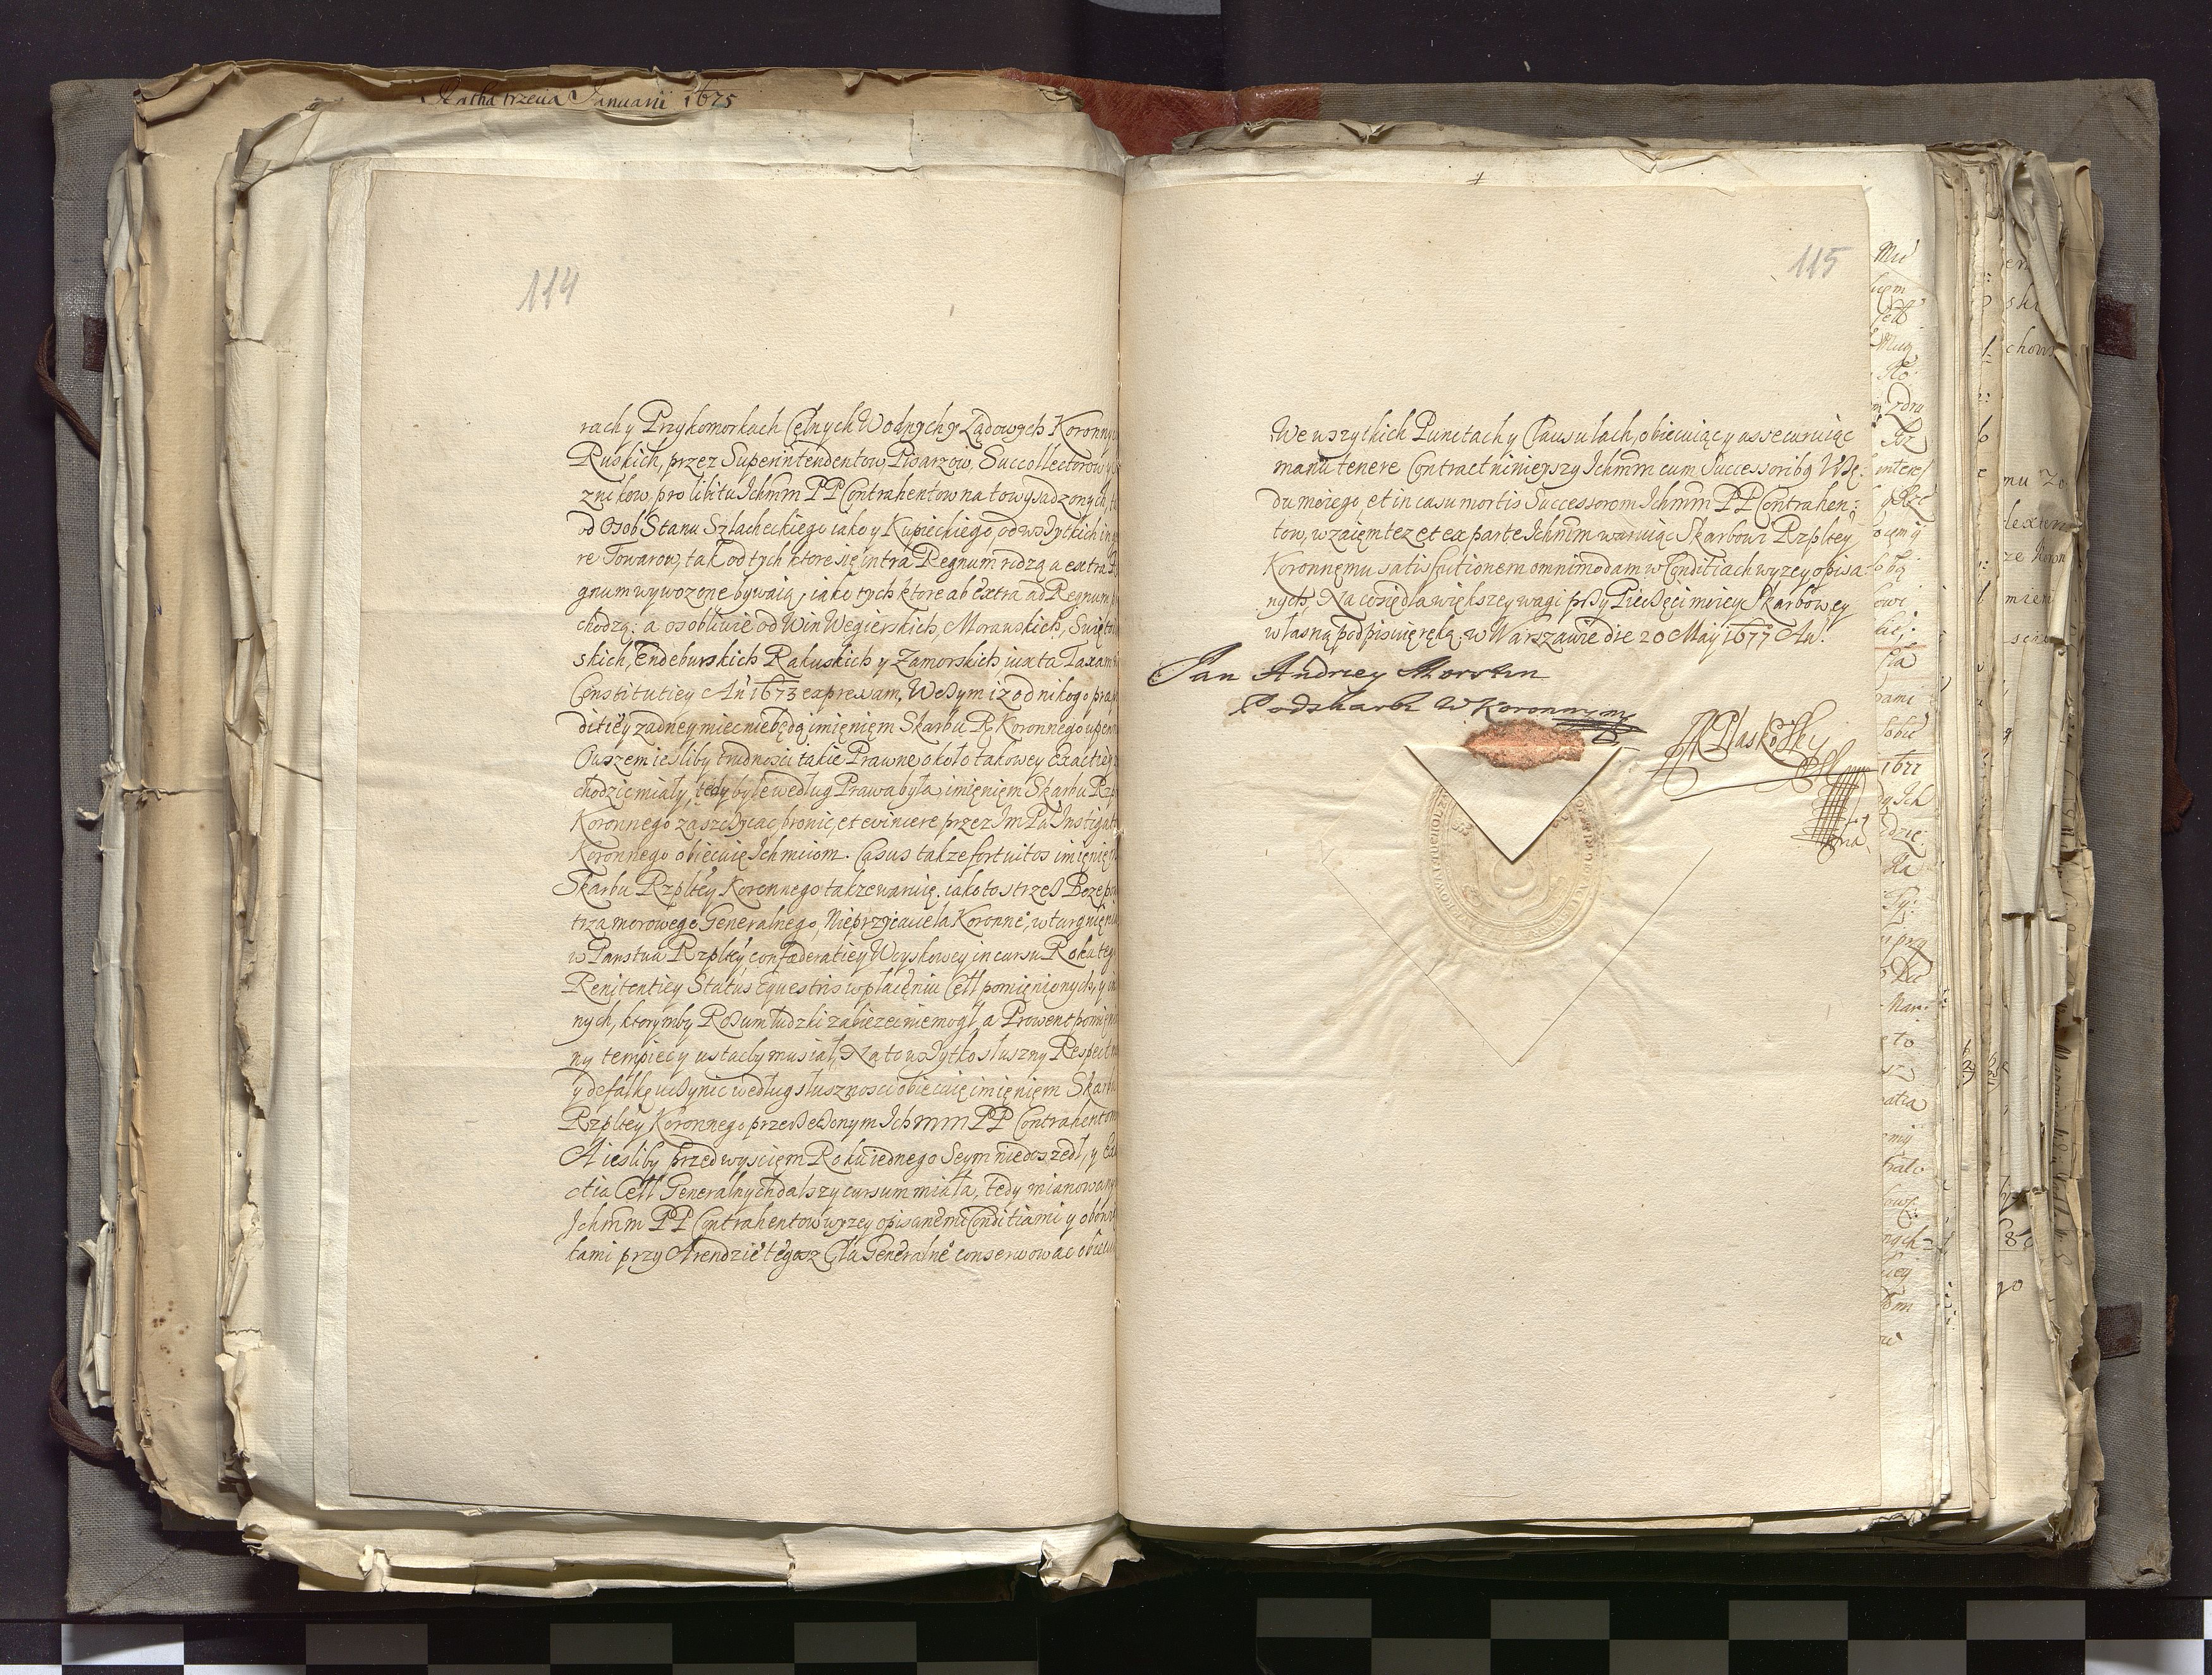 Ratha trzecia Januarii 1675
114
rach y Przykomorkach Celnych Wodnych y Lądowych Koronny
Ruskich, przez Superintendentow, Pisarzow, Succollectorow
znikow, pro libitu Ichmm PP Contrahentow na to wysadzonych,
od Osob Stanu Szlacheckiego iako y Kupieckiego, od wszytkich in
re Towarow, tak od tych ktore się intra Regnum rodzą a extra
gnum wywozone bywaią, iako tych ktore ab extra ad Regnum
chodzą: a osobliwie od Win Węgierskich, Morawskich, Swięto
skich, Endeburskich Rakuskich y Zamorskich iuxta Taxam
Constitutiey An 1673 expressam, Wczym iz od nikogo
ditiey zadney miec niebędą imięnięm Skarbu R Koronnego
Owszem iesliby trudnosci takie Prawne około takowey Exactiey
chodzic miały, tedy byle według Prawa była, imięnięm Skarbu Rzp
Koronnego zaszczycac, bronic, et evincere przez Im Pa Instigat
Koronnego obiecuię Ichmciom. Casus takze fortuitos imięnię
Skarbu Rzpltey Koronnego takze waruię. iako to strzesz Boze
trza morowego Generalnego, Nieprzyiaciela Koronne, wturgnięni
w Panstwa Rzpltey, confaederatiey Woyskowey in cursu Roku teg
Renitentiey Status Equestris w płacęniu Cell pomięnionych, y in
nych, ktorymby Rozum ludzki zabiezec niemogł, a Prowent pomię
ny tempiec y ustacby musiał, Na to wszytko słuszny Respect
y defalkę uczynic według słusznosci obiecuię imięnięm Skarb
Rzpltey Koronnego przerzeczonym Ichmm PP Contrahentom
A iesliby przed wysciem Roku iednego Seym niedoszedł, y Ex
ctia Cell Generalnych dalszy cursum miała, tedy mianowany
Ichmm PP Contrahentow wyzey opisanemi Conditiami y
kami przy Arendzie tegosz Cła Generalne conserwowac obiecu
115
We wszytkich Punctach y Clausulach, obiecuiąc y assecuruiąc
manu tenere Contract ninieyszy Ichmm cum Successoribq Urzę:
du moiego et in casu mortis Successorom Ichmm PP Contrahen:
tow, wzaięm tez et ex parte Ichmm waruiąc Skarbowi Rzpltey
Koronnęmu satisfactionem omnimodam w Conditiach wyzey opisa:
nych, Na co się dla większey wagi przy Pieczęci moiey Skarbowey
własną podpisuię ręką. w Warszawie die 20 Maÿ 1677 An.
Jan Andrzey Morsztin
Podskarbi W Koronnym